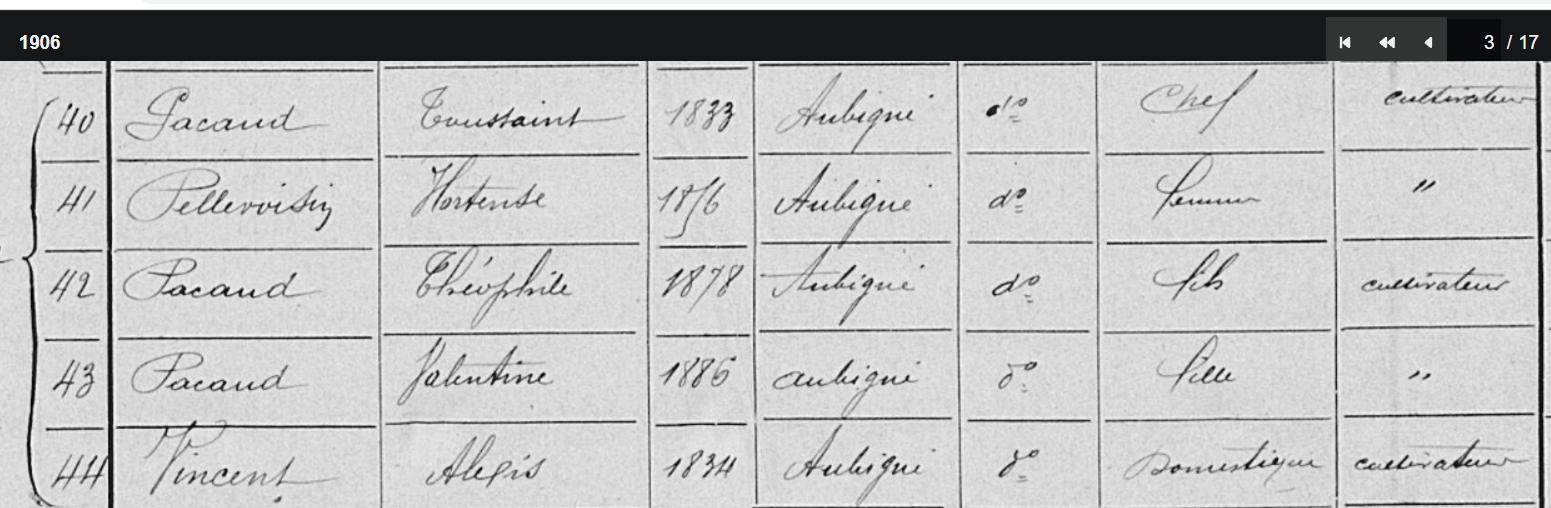 1906 3 / 17
40 Pacaud Toussaint 1833 Aubigné do Chef cultivateur
41 Pellevoisin Hortense Aubigné do femme "
42 Pacaud Théophile 1878 Aubigné do fils cultivateur
43 Pacaud Valentine 1886 aubigné do fille "
44 Vincent Alexis 1834 Aubigné do Domestique cultivateur